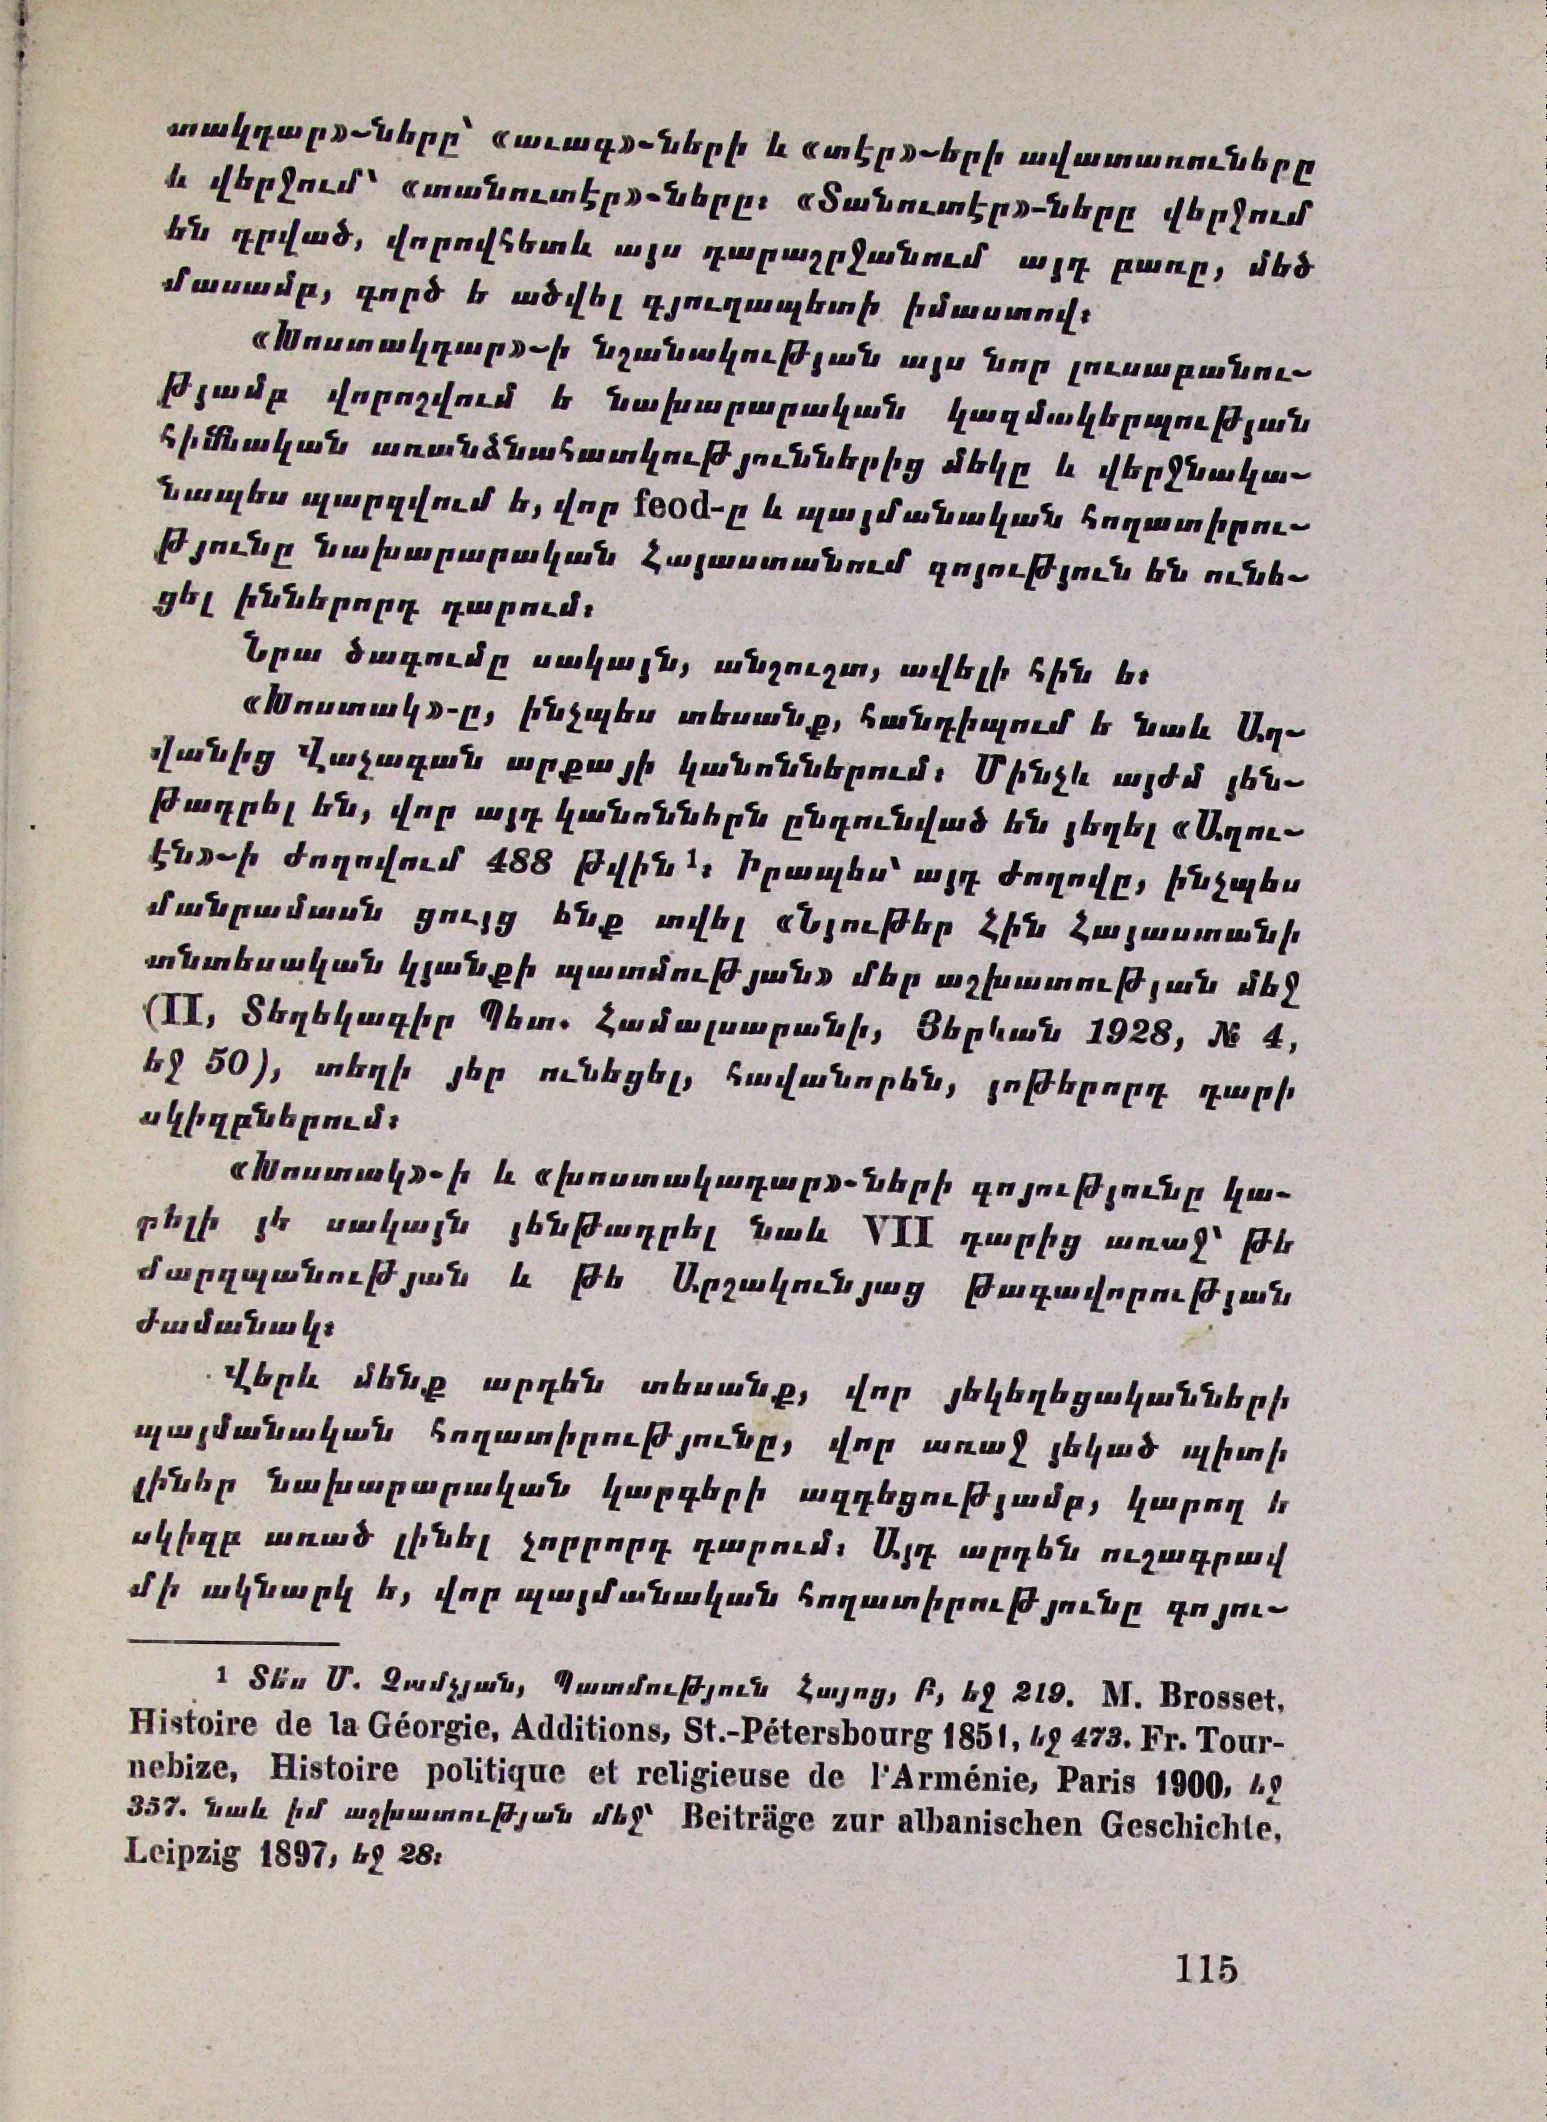 տակդար»-ները՝ «աւագ»-ների և «տէր»-երի ավատառուները
և վերջում՝ «տանուտէր»-ները։ «Տանուտէր»-ները վերջում
են դրված, վորովհետև այս դարաշրջանում այդ բառը, մեծ
մասամբ, գործ ե ածվել գյուղապետի իմաստով։
«Խոստակդար»-ի նշանակության այս նոր լուսաբանու-
թյամբ վորոշվում ե նախարարական կազմակերպության
հիմնական առանձնահատկություններից մեկը և վերջնակա-
նապես պարզվում ե, վոր feod-ը և պայմանական հողատիրու-
թյունը նախարարական Հայաստանում գոյություն են ունե-
ցել իններորդ դարում։
Նրա ծագումը սակայն, անշուշտ, ավելի հին ե։
«Խոստակ»-ը, ինչպես տեսանք, հանդիպում ե նաև Աղ-
վանից Վաչագան արքայի կանոններում։ Մինչև այժմ յեն-
թադրել են, վոր այդ կանոններն ընդունված են յեղել «Աղու-
էն»-ի ժողովում 488 թվին¹։ Իրապես՝ այդ ժողովը, ինչպես
մանրամասն ցույց ենք տվել «Նյութեր Հին Հայաստանի
տնտեսական կյանքի պատմության» մեր աշխատության մեջ
(II, Տեղեկագիր Պետ. Համալսարանի, Յերևան 1928, № 4,
եջ 50), տեղի յեր ունեցել, հավանորեն, յոթերորդ դարի
սկիզբներում։
«Խոստակ»-ի և «խոստակադար»-ների գոյությունը կա-
րելի յե սակայն յենթադրել նաև VII դարից առաջ՝ թե
մարզպանության և թե Արշակունյաց թագավորության
ժամանակ։
Վերև մենք արդեն տեսանք, վոր յեկեղեցականների
պայմանական հողատիրությունը, վոր առաջ յեկած պիտի
լիներ նախարարական կարգերի ազդեցությամբ, կարող ե
սկիզբ առած լինել չորրորդ դարում։ Այդ արդեն ուշագրավ
մի ակնարկ ե, վոր պայմանական հողատիրությունը գոյու-
¹ Տես Մ. Չամչյան, Պատմություն Հայոց, Բ, եջ 219. M. Brosset,
Histoire de la Géorgie, Additions, St.-Pétersbourg 1851, եջ 473. Fr. Tour-
nebize, Histoire politique et religieuse de l'Arménie, Paris 1900, եջ
357. նաև իմ աշխատության մեջ՝ Beiträge zur albanischen Geschichte,
Leipzig 1897, եջ 28։
115